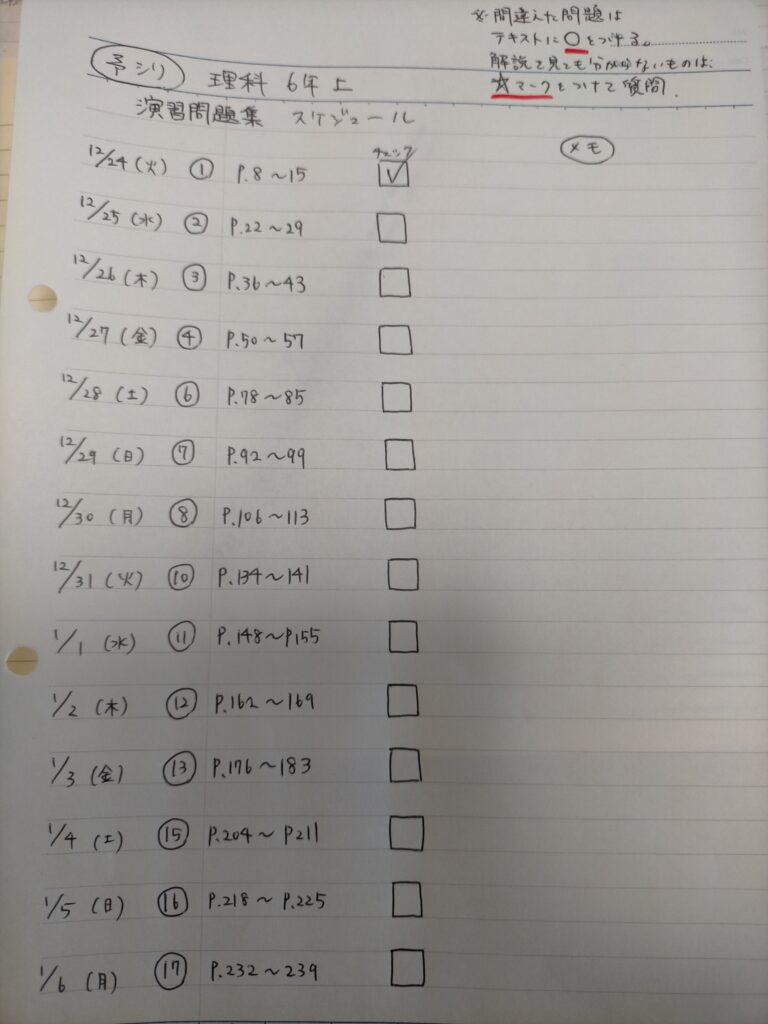 ※ 間違えた問題は
テキストに○をつける。
解説を見ても分からないものは、
☆マークをつけて質問.
予シリ 理科 6年上
演習問題集 スケジュール
チェック
メモ
12/24(火) ① P.8〜15
12/25(水) ② P.22〜29
12/26(木) ③ P.36〜43
12/27(金) ④ P.50〜57
12/28(土) ⑥ P.78〜85
12/29(日) ⑦ P.92〜99
12/30(月) ⑧ P.106〜113
12/31(火) ⑩ P.134〜141
1/1(水) ⑪ P.148〜P155
1/2(木) ⑫ P.162〜169
1/3(金) ⑬ P.176〜183
1/4(土) ⑮ P.204〜P211
1/5(日) ⑯ P.218〜P.225
1/6(月) ⑰ P.232〜239